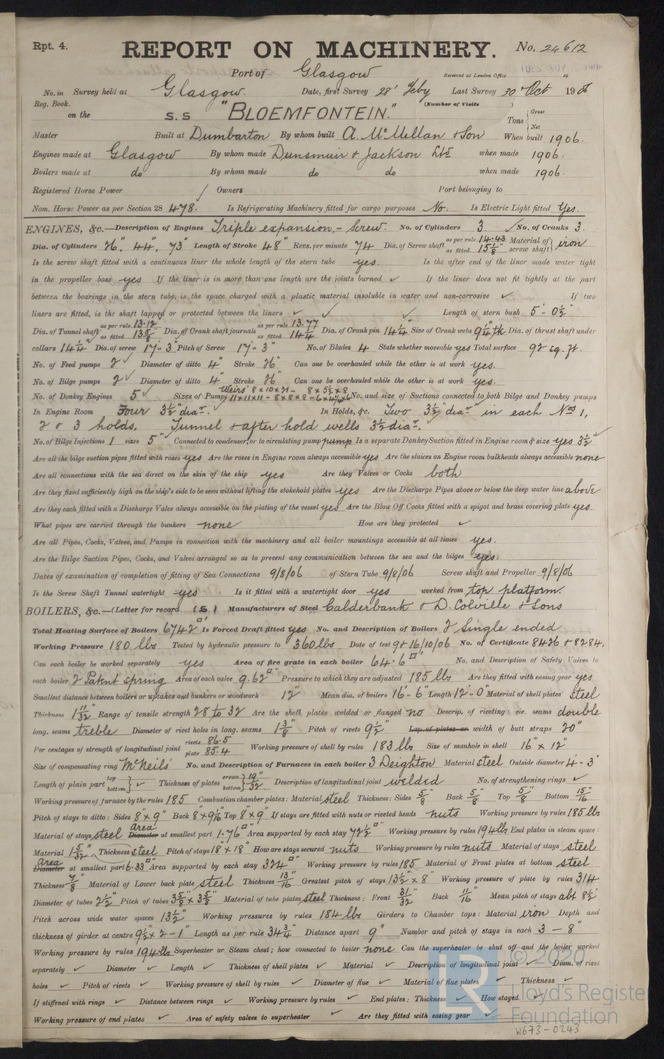 Rpt. 4.
REPORT ON MACHINERY. No. 24612
Port of Glasgow
Received at London Office
No. in Survey held at Glasgow. Date, first Survey 28th Feby Last Survey 30th Oct 1906
Reg. Book. (Number of Visits
on the S.S "BLOEMFONTEIN." Tons Gross Net
Master Built at Dumbarton By whom built A. McMillan & Son When built 1906.
Engines made at Glasgow By whom made Dunsmuir & Jackson Ltd when made 1906.
Boilers made at do By whom made do do when made 1906.
Registered Horse Power Owners Port belonging to
Nom. Horse Power as per Section 28 478. Is Refrigerating Machinery fitted for cargo purposes No. Is Electric Light fitted Yes.
ENGINES, &c.—Description of Engines Triple expansion - Screw. No. of Cylinders 3 No. of Cranks 3.
Dia. of Cylinders 26", 44", 73" Length of Stroke 48" Revs. per minute 74 Dia. of Screw shaft as per rule 14.43 as fitted 15 1/8" Material of screw shaft iron
Is the screw shaft fitted with a continuous liner the whole length of the stern tube yes. Is the after end of the liner made water tight
in the propeller boss yes If the liner is in more than one length are the joints burned ✓ If the liner does not fit tightly at the part
between the bearings in the stern tube, is the space charged with a plastic material insoluble in water and non-corrosive ✓ If two
liners are fitted, is the shaft lapped or protected between the liners ✓ Length of stern bush 5'-0½"
Dia. of Tunnel shaft as per rule 13.12 as fitted 13 5/8 Dia. of Crank shaft journals as per rule 13.77 as fitted 14¼ Dia. of Crank pin 14¼" Size of Crank webs Dia. of thrust shaft under
collars 14¼" Dia. of screw 17'-3" Pitch of Screw 17'-3" No. of Blades 4 State whether moveable yes Total surface 92 sq. ft.
No. of Feed pumps 2 Diameter of ditto 4" Stroke 26" Can one be overhauled while the other is at work yes.
No. of Bilge pumps 2 Diameter of ditto 4" Stroke 26" Can one be overhauled while the other is at work yes.
No. of Donkey Engines 5 Sizes of Pumps Weirs No. and size of Suctions connected to both Bilge and Donkey pumps
In Engine Room Four 3½" dia. In Holds, &c. Two 3½" dia. in each Nos 1,
2 & 3 holds. Tunnel & after hold wells 3½ dia.
No. of Bilge Injections 1 sizes 5" Connected to condenser, or to circulating pump pump Is a separate Donkey Suction fitted in Engine room & size yes 3½"
Are all the bilge suction pipes fitted with roses yes Are the roses in Engine room always accessible yes Are the sluices on Engine room bulkheads always accessible none
Are all connections with the sea direct on the skin of the ship yes Are they Valves or Cocks both
Are they fixed sufficiently high on the ship's side to be seen without lifting the stokehold plates yes Are the Discharge Pipes above or below the deep water line above
Are they each fitted with a Discharge Valve always accessible on the plating of the vessel yes Are the Blow Off Cocks fitted with a spigot and brass covering plate yes.
What pipes are carried through the bunkers none How are they protected ✓
Are all Pipes, Cocks, Valves, and Pumps in connection with the machinery and all boiler mountings accessible at all times yes.
Are the Bilge Suction Pipes, Cocks, and Valves arranged so as to prevent any communication between the sea and the bilges yes.
Dates of examination of completion of fitting of Sea Connections 9/8/06 of Stern Tube 9/8/06 Screw shaft and Propeller 9/8/06
Is the Screw Shaft Tunnel watertight yes Is it fitted with a watertight door yes worked from top platform.
BOILERS, &c.—(Letter for record (S) Manufacturers of Steel Calderbank & D. Colville & Sons
Total Heating Surface of Boilers 6742 Is Forced Draft fitted yes No. and Description of Boilers 2 Single ended
Working Pressure 180 lbs Tested by hydraulic pressure to 360 lbs Date of test 9 & 16/10/06 No. of Certificate 8426 & 8284.
Can each boiler be worked separately yes Area of fire grate in each boiler 64.6 No. and Description of Safety Valves to
each boiler 2 Patent spring Area of each valve 9.62" Pressure to which they are adjusted 185 lbs Are they fitted with easing gear yes
Smallest distance between boilers or uptakes and bunkers or woodwork 12" Mean dia. of boilers 16'-6" Length 12'-0" Material of shell plates steel
Thickness 1 11/32 Range of tensile strength 28 to 32 Are the shell plates welded or flanged no Descrip. of riveting: cir. seams double
long. seams treble Diameter of rivet holes in long. seams 1 3/8" Pitch of rivets 9½" Lap of plates or width of butt straps 20"
Per centages of strength of longitudinal joint rivets 86.5 plate 85.4 Working pressure of shell by rules 183 lbs Size of manhole in shell 16" x 12"
Size of compensating ring McNeils No. and Description of Furnaces in each boiler 3 Deighton Material steel Outside diameter 4'-3"
Length of plain part top bottom ✓ Thickness of plates crown bottom 19/32" Description of longitudinal joint welded No. of strengthening rings ✓
Working pressure of furnace by the rules 185 Combustion chamber plates: Material steel Thickness: Sides 5/8" Back 5/8" Top 5/8" Bottom 15/16"
Pitch of stays to ditto: Sides 8 x 9" Back Top 8 x 9" If stays are fitted with nuts or riveted heads nuts Working pressure by rules 185 lbs
Material of stays steel Area Diameter at smallest part 1.76" Area supported by each stay 72½" Working pressure by rules 194 lbs End plates in steam space:
Material Thickness steel Pitch of stays 18" x 18" How are stays secured nuts Working pressure by rules nuts Material of stays steel
Area Diameter at smallest part 6.33" Area supported by each stay 324" Working pressure by rules 185 Material of Front plates at bottom steel
Thickness 7/8" Material of Lower back plate steel Thickness 13/16" Greatest pitch of stays 13½" x 8" Working pressure of plate by rules 314
Diameter of tubes 2½" Pitch of tubes Material of tube plates steel Thickness: Front 31/32 Back 11/16" Mean pitch of stays abt 8½"
Pitch across wide water spaces 13½" Working pressures by rules 184 lbs Girders to Chamber tops: Material iron Depth and
thickness of girder at centre 9½ x 2-1" Length as per rule 34¾ Distance apart 9" Number and pitch of stays in each 3 - 8"
Working pressure by rules 194 lbs Superheater or Steam chest; how connected to boiler none Can the superheater be shut off and the boiler worked
separately ✓ Diameter ✓ Length ✓ Thickness of shell plates ✓ Material ✓ Description of longitudinal joint ✓ Diam. of rivet
holes ✓ Pitch of rivets ✓ Working pressure of shell by rules ✓ Diameter of flue ✓ Material of flue plates ✓ Thickness ✓
If stiffened with rings ✓ Distance between rings ✓ Working pressure by rules ✓ End plates: Thickness ✓ How stayed
Working pressure of end plates ✓ Area of safety valves to superheater ✓ Are they fitted with easing gear ✓
© 2020
Lloyd's Register
Foundation
W673-0243